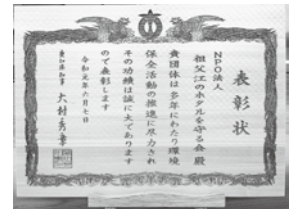 表彰状
NPO法人
祖父江のホタルを守る会 殿
貴団体は多年にわたり環境
保全活動の推進に尽力され
その功績は誠に大であります
ので表彰します
令和元年六月七日
愛知県知事 大村秀章